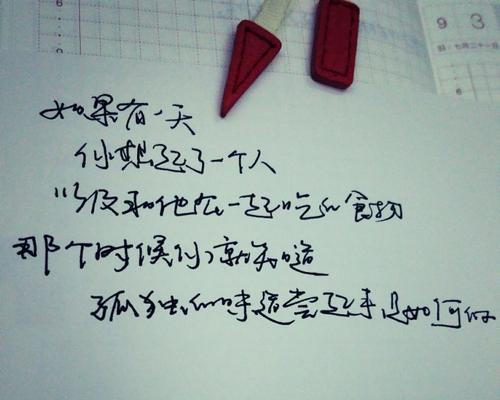 6
9 3
如果有一天
你想起了一个人
以及和他在一起吃的食物
那个时候你就知道
孤独的味道尝起来是如何的